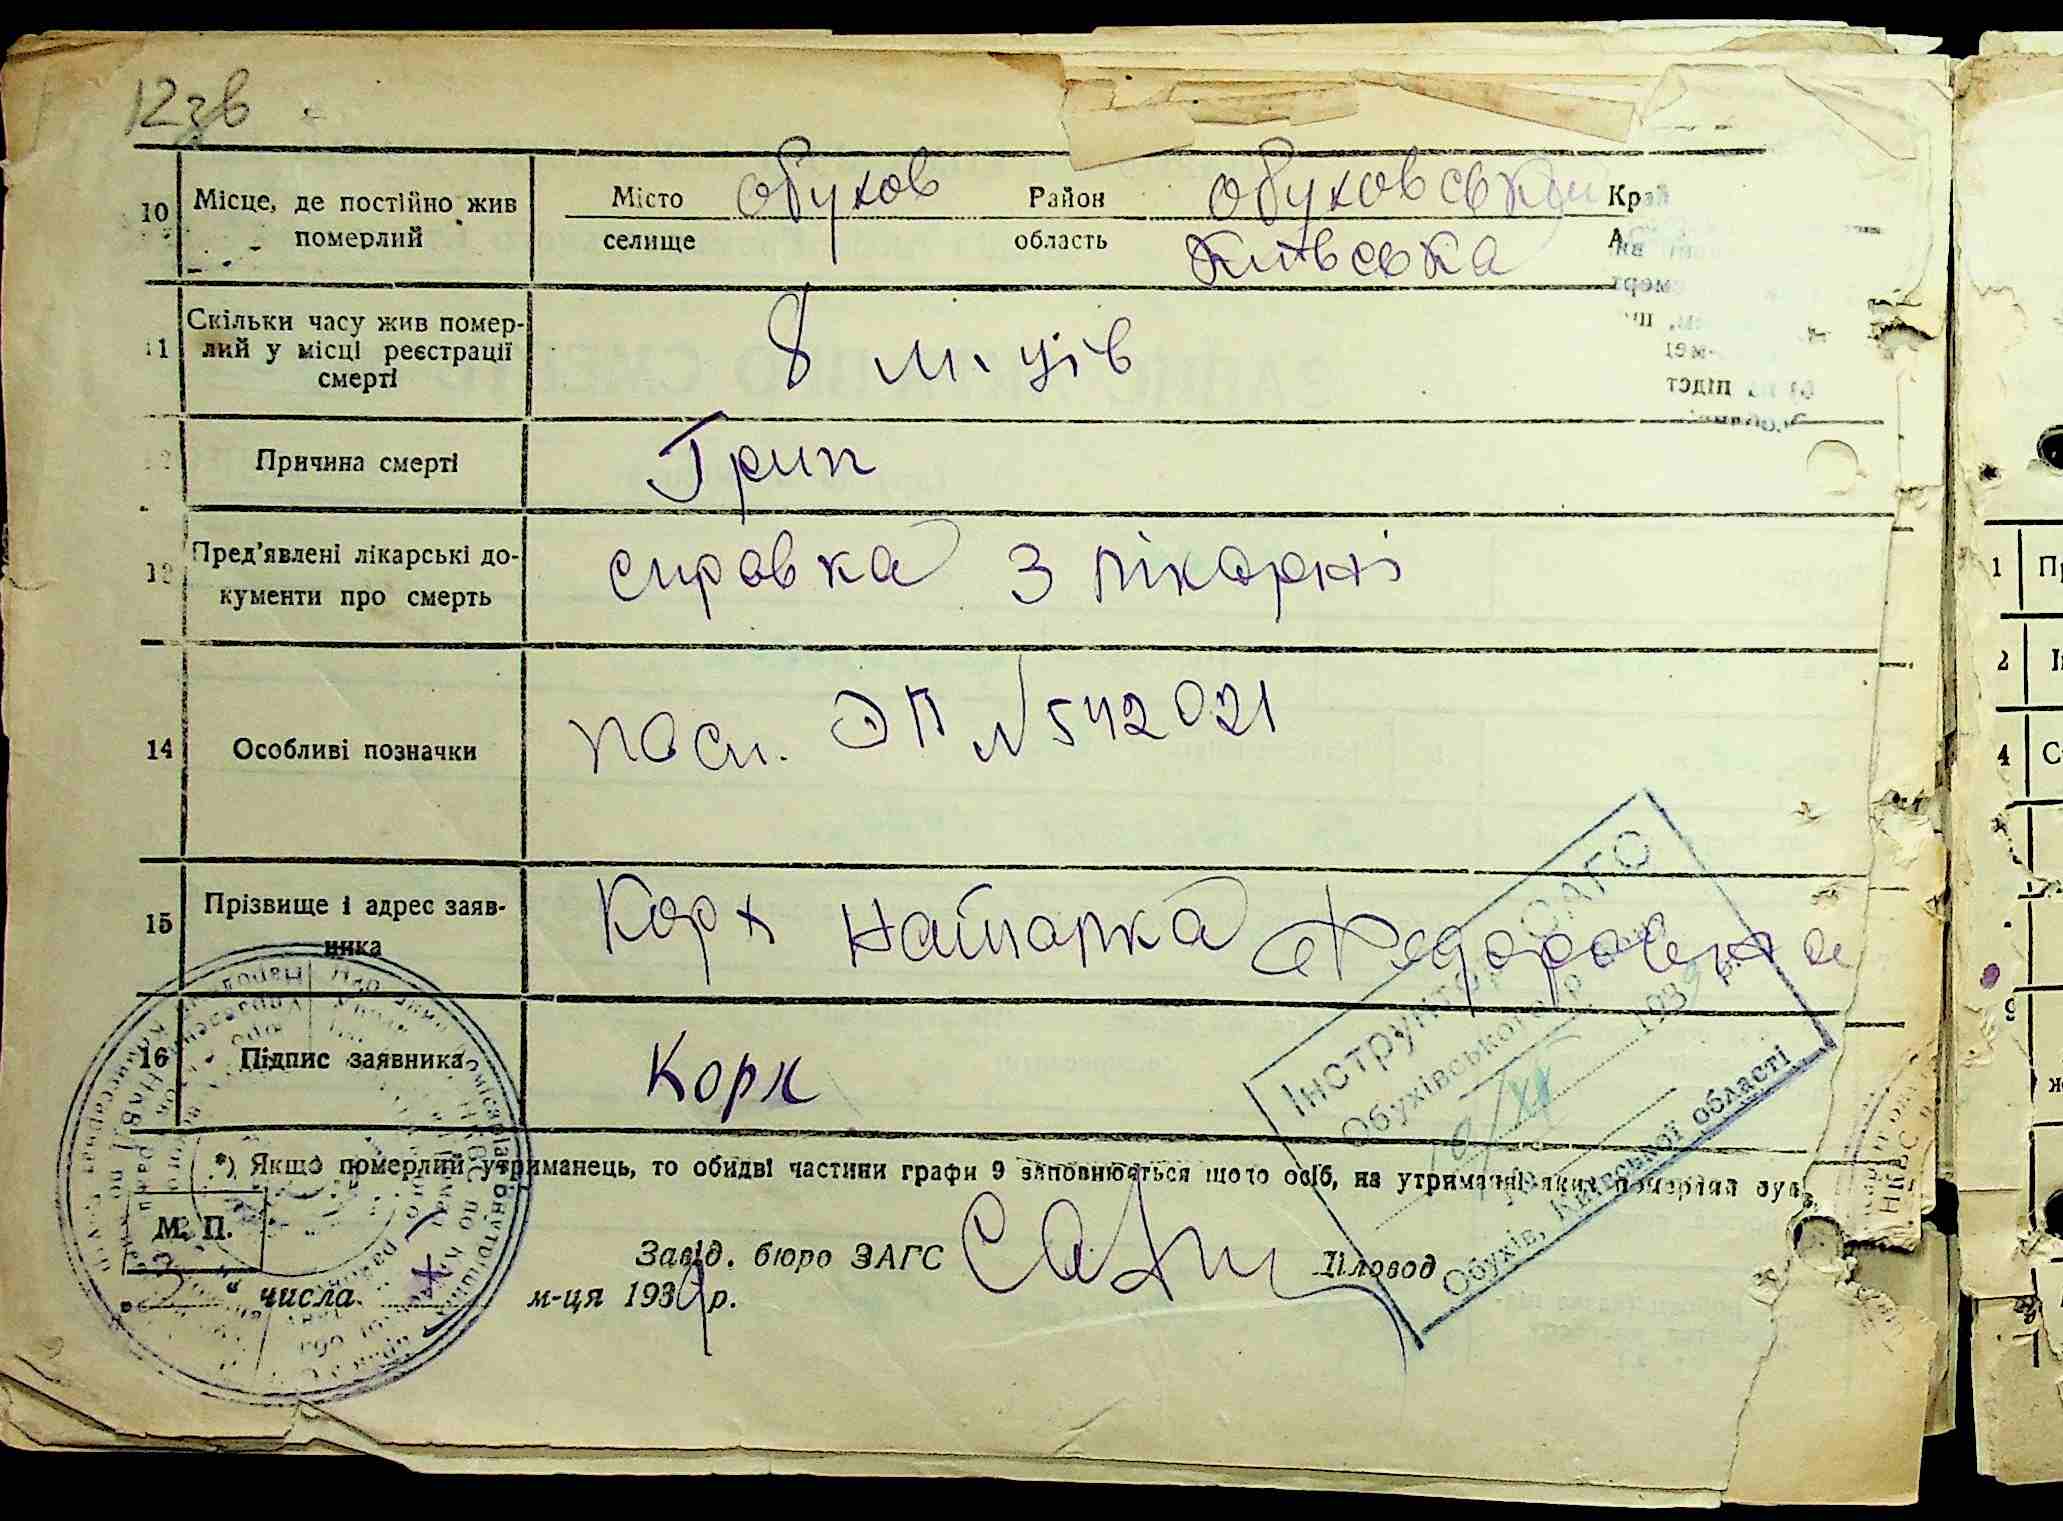 12зв
10 Місце, де постійно жив померлий
Місто Обухов Район Обуховський Край
селище область Київська А
11 Скільки часу жив помер-
лий у місці реєстрації
смерті
8 м-ців
Причина смерті Грип
Пред'явлені лікарські до-
кументи про смерть
справка з лікарні
14 Особливі позначки
посп. ЭП №542021
15 Прізвище і адрес заяв-
ника
Корх Наталка Федоровна
16 Підпис заявника Корх
*) Якщо померлий утриманець, то обидві частини графи 9 заповнюються щодо осіб, на утриманні яких померлий був.
М. П.
Завід. бюро ЗАГС
Діловод
"3" числа X м-ця 1939 р.
Інструктор ОАГС
Обухівського
XII 1939 р.
Обухів, Київської області
1 Пр
2 Ім
4 С
9